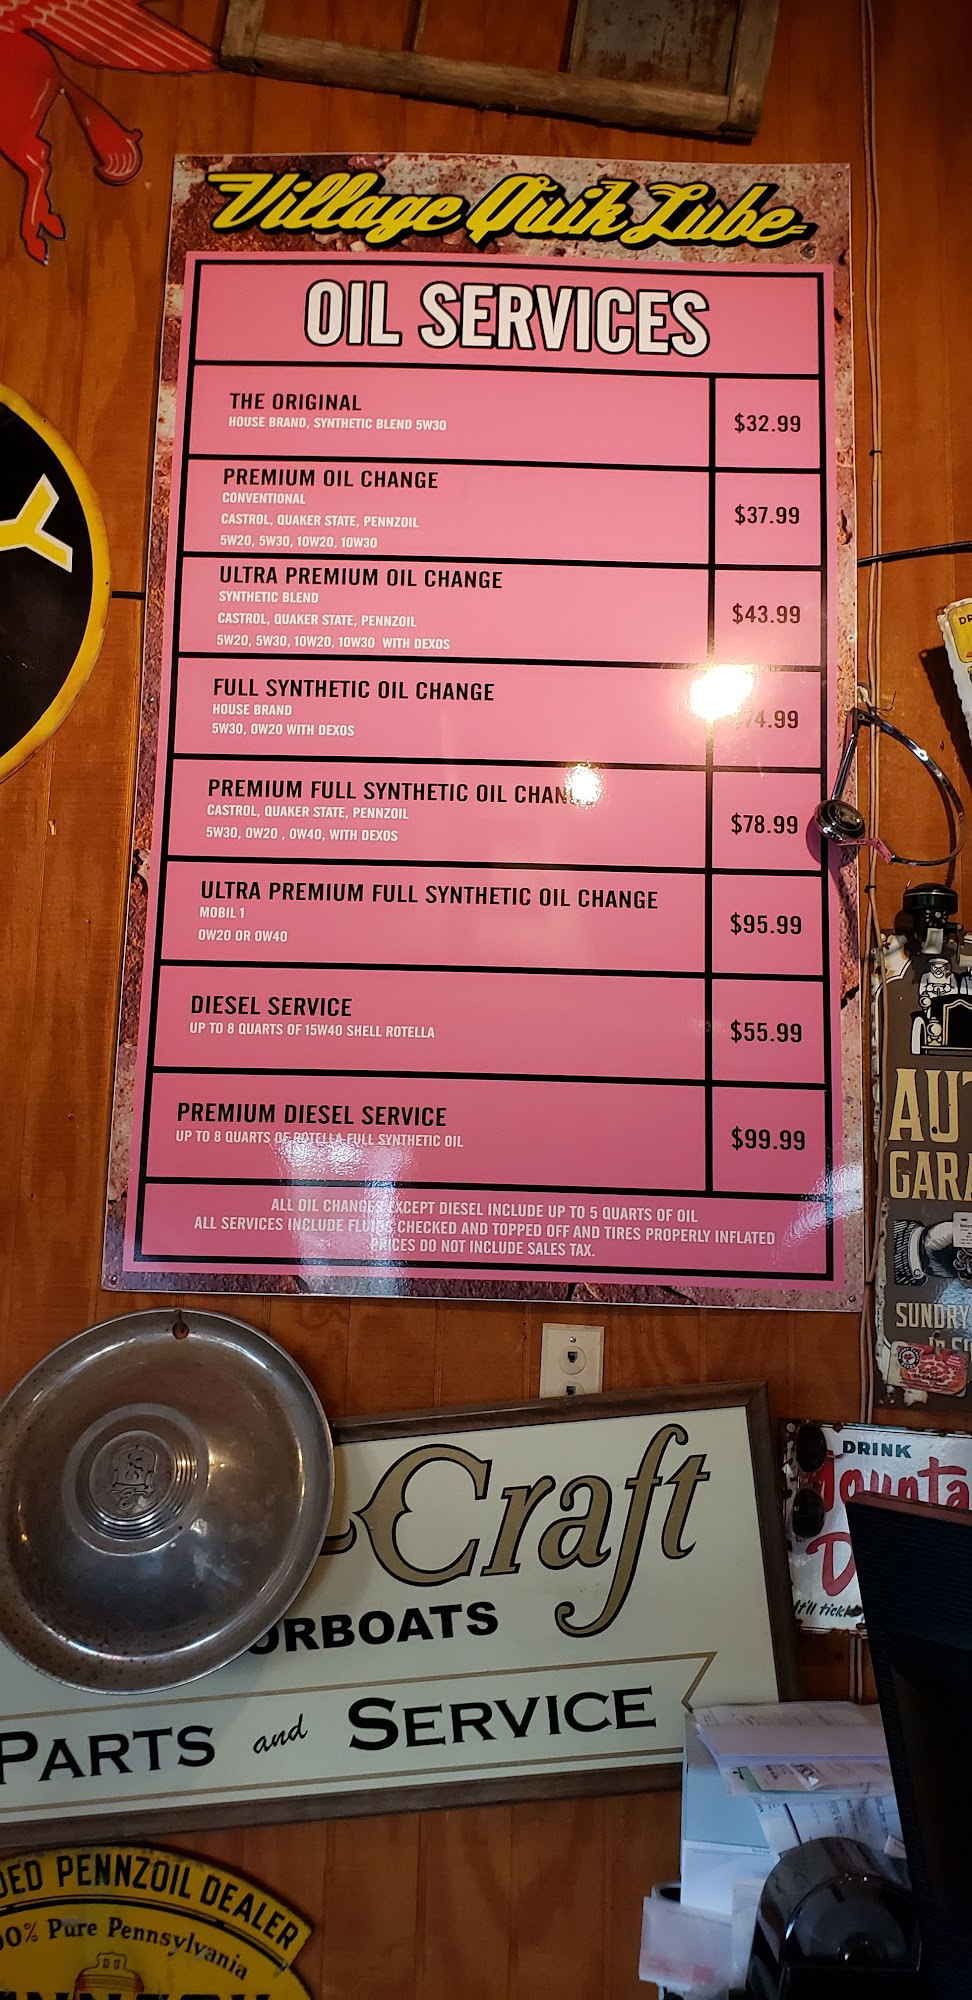 Village Quik Lube
OIL SERVICES
THE ORIGINAL
HOUSE BRAND, SYNTHETIC BLEND 5W30
$32.99
PREMIUM OIL CHANGE
CONVENTIONAL
CASTROL, QUAKER STATE, PENNZOIL
5W20, 5W30, 10W20, 10W30
$37.99
ULTRA PREMIUM OIL CHANGE
SYNTHETIC BLEND
CASTROL, QUAKER STATE, PENNZOIL
5W20, 5W30, 10W20, 10W30 WITH DEXOS
$43.99
FULL SYNTHETIC OIL CHANGE
HOUSE BRAND
5W30, 0W20 WITH DEXOS
74.99
PREMIUM FULL SYNTHETIC OIL CHAN
CASTROL, QUAKER STATE, PENNZOIL
5W30, 0W20 , 0W40, WITH DEXOS
$78.99
ULTRA PREMIUM FULL SYNTHETIC OIL CHANGE
MOBIL 1
0W20 OR 0W40
$95.99
DIESEL SERVICE
UP TO 8 QUARTS OF 15W40 SHELL ROTELLA
$55.99
PREMIUM DIESEL SERVICE
UP TO 8 QUARTS OF ROTELLA FULL SYNTHETIC OIL
$99.99
ALL OIL CHANGES EXCEPT DIESEL INCLUDE UP TO 5 QUARTS OF OIL
ALL SERVICES INCLUDE FLUIDS CHECKED AND TOPPED OFF AND TIRES PROPERLY INFLATED
PRICES DO NOT INCLUDE SALES TAX.
Y
DR
AUT
GARA
SUNDRY
DRINK
Mounta
D
It'll tickle
-Craft
ORBOATS
PARTS and SERVICE
DED PENNZOIL DEALER
00% Pure Pennsylvania